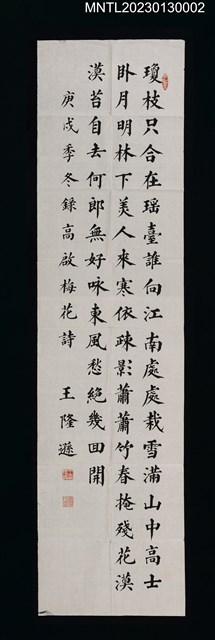 MNTL20230130002
瓊枝只合在瑶臺誰向江南處處栽雪滿山中高士
卧月明林下美人來寒依疎影蕭蕭竹春掩殘花漠
漠苔自去何郎無好咏東風愁絕幾回開
庚戌季冬錄高啟梅花詩 王隆遜